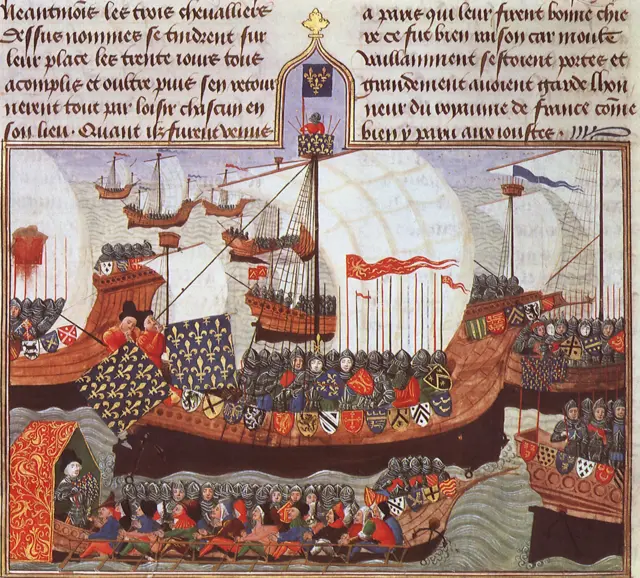 Neantmoīs les trois chevalliers
dessus nommes se tindrent sur
leur place les trente iours tous
acomplis et oultre puis sen retour
nerent tout par loisir chascun en
son lieu. Quant ilz furent venus
a paris qui leur firent bonne chie
re ce fut bien raison car moult
vaillamment sestoient portes et
grandement auoient garde lhon
neur du royaume de france cōme
bien y paru aux ioustes.